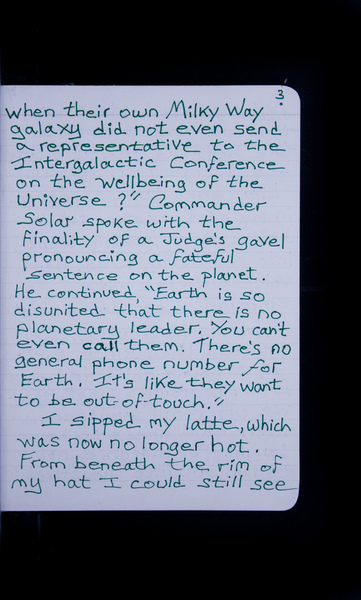 3.
when their own Milky Way
galaxy did not even send
a representative to the
Intergalactic Conference
on the wellbeing of the
Universe?" Commander
Solar spoke with the
finality of a Judge's gavel
pronouncing a fateful
sentence on the planet.
He continued, "Earth is so
disunited that there is no
planetary leader. You can't
even call them. There's no
general phone number for
Earth. It's like they want
to be out-of-touch."
I sipped my latte, which
was now no longer hot.
From beneath the rim of
my hat I could still see